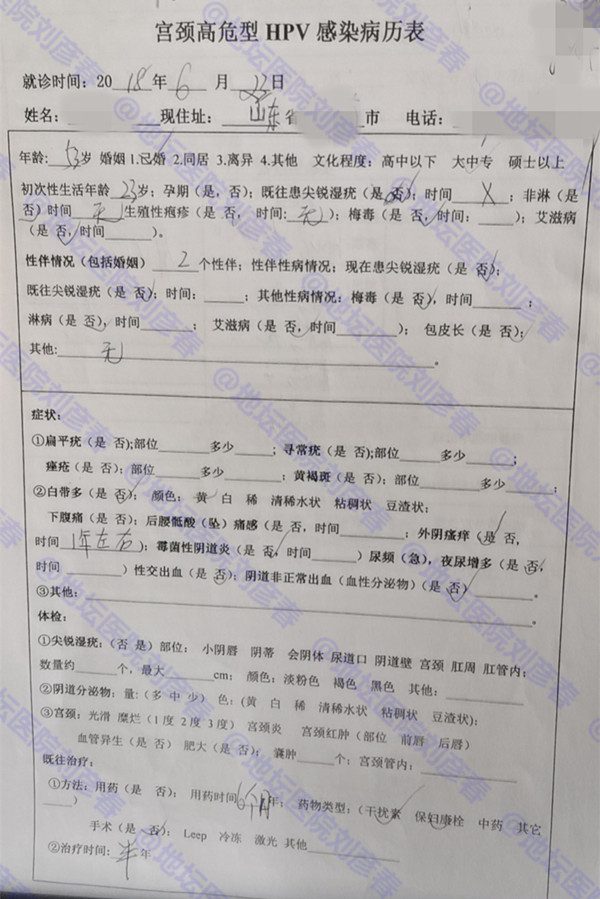 宫颈高危型 HPV 感染病历表
就诊时间：2018年6月23日
姓名： 现住址：山东省 市 电话：
年龄：53岁 婚姻 1.已婚 2.同居 3.离异 4.其他 文化程度：高中以下 大中专 硕士以上
初次性生活年龄 23岁；孕期（是，否）；既往患尖锐湿疣（是 否）；时间 X ；非淋（是
否）时间 无 生殖性疱疹（是 否， 时间：无）；梅毒（是 否，时间： ）；艾滋病
（是 否，时间 ）。
性伴情况（包括婚姻） 2 个性伴；性伴性病情况；现在患尖锐湿疣（是 否）；
既往尖锐湿疣（是 否）；时间： ；其他性病情况：梅毒（是 否），时间 ；
淋病（是 否），时间 ； 艾滋病（是 否，时间 ）； 包皮长（是 否）；
其他： 无 。
症状：
①扁平疣（是 否）;部位 多少 ；寻常疣（是 否）;部位 多少 ；
痤疮（是 否）；部位 多少 ；黄褐斑（是 否）；部位 多少 ；
②白带多（是 否）； 颜色： 黄 白 稀 清稀水状 粘稠状 豆渣状；
下腹痛（是 否）；后腰骶酸（坠）痛感（是 否，时间 ； 外阴瘙痒（是 否，
时间 1年左右）；霉菌性阴道炎（是 否，时间 ）尿频（急），夜尿增多（是 否，
时间 ）性交出血（是 否）；阴道非正常出血（血性分泌物）（是 否）
③其他： 。
体检：
①尖锐湿疣；（否 是）部位： 小阴唇 阴蒂 会阴体 尿道口 阴道壁 宫颈 肛周 肛管内；
数量约 个，最大 cm； 颜色：淡粉色 褐色 黑色 其他：
②阴道分泌物：量:（多 中 少） 色：(黄 白 稀 清稀水状 粘稠状 豆渣状）；
③宫颈：光滑 糜烂（1度 2度 3度） 宫颈炎 宫颈红肿（部位 前唇 后唇）
血管异生（是 否）肥大（是 否）； 囊肿 个；宫颈管内：
既往治疗：
①方法：用药（是 否）； 用药时间6个月年； 药物类型：（干扰素 保妇康栓 中药 其它
）
手术（是 否）； Leep 冷冻 激光 其他
②治疗时间：半年
@地坛医院刘彦春